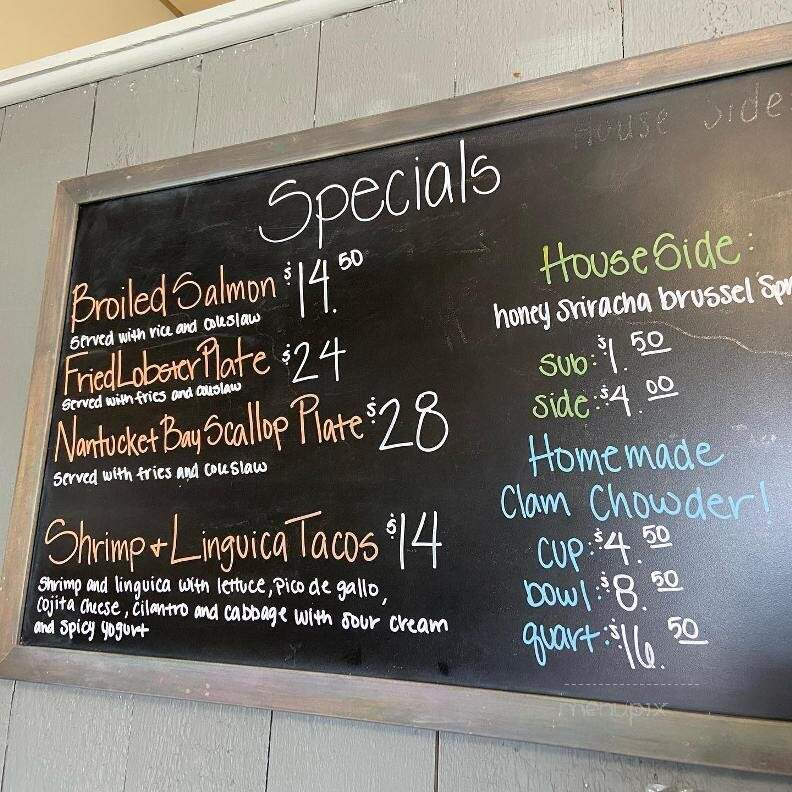 Specials
Broiled Salmon $14.50
Served with rice and coleslaw
Fried Lobster Plate $24
Served with fries and coleslaw
Nantucket Bay Scallop Plate $28
Served with fries and coleslaw
Shrimp + Linguica Tacos $14
Shrimp and linguica with lettuce, pico de gallo,
cojita cheese, cilantro and cabbage with sour cream
and spicy yogurt
House Side
House Side:
honey sriracha brussel Spr
sub: $1.50
side: $4.00
Homemade
Clam Chowder!
cup: $4.50
bowl: $8.50
quart: $16.50
menupix